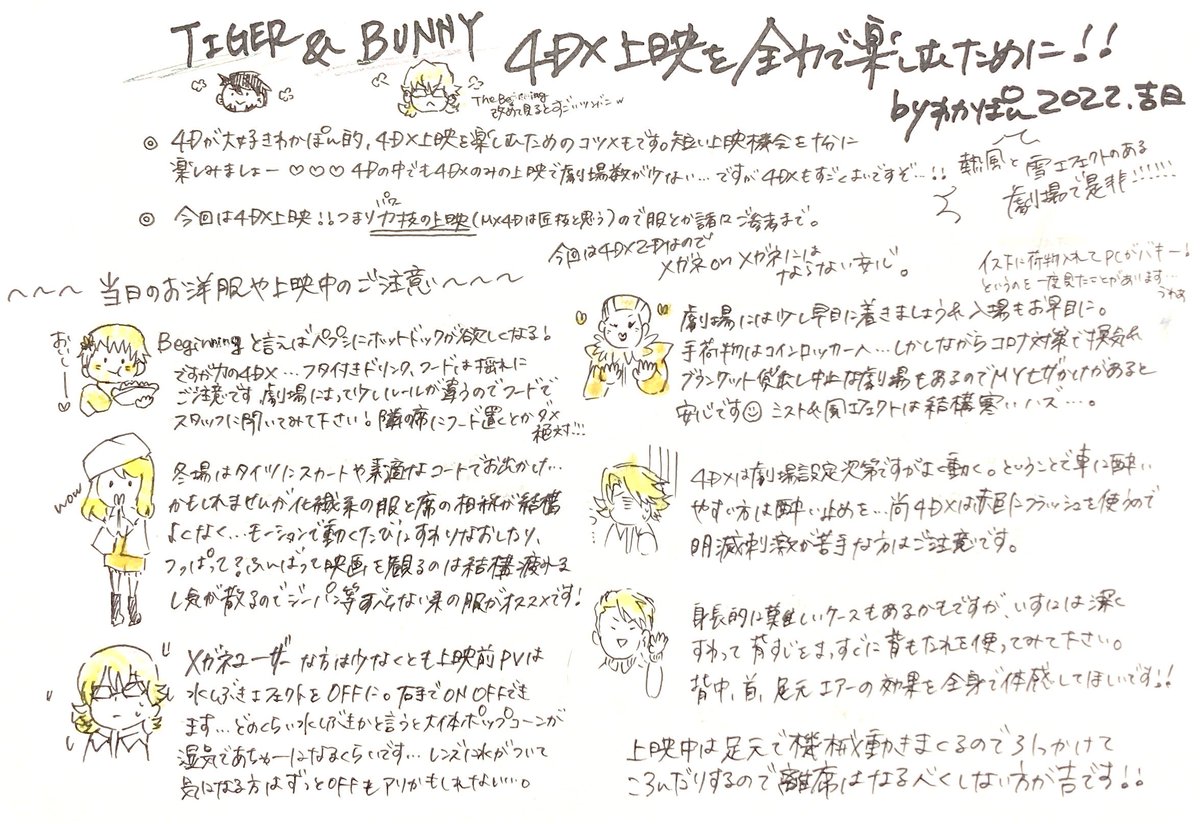 TIGER & BUNNY 4DX上映を全力で楽しむために!!
The Beginning
改めて見るとすごいツンツンw
by わかぽん 2022.吉日
◎ 4Dが大好きわかぽん的、4DX上映を楽しむためのコツメモです。短い上映機会を十分に
楽しみましょー ♡♡♡ 4Dの中でも4DXのみの上映で劇場数が少ない…ですが4DXもすごくよいですぞ…!!
熱風と雪エフェクトのある
劇場で是非!!!!!!
◎ 今回は4DX上映!!つまり力技の上映(MX4Dは匠技と思う)ので服とか諸々ご参考まで。
パワー
今回は4DX2Dなので
メガネonメガネには
ならない安心。
〜〜〜 当日のお洋服や上映中のご注意 〜〜〜〜
おいしーー♡
Beginningと言えばペプシにホットドックが欲しくなる!
ですが力の4DX…フタ付きドリンク、フードは揺れに
ご注意です。劇場によって少しルールが違うのでフードで
スタッフに聞いてみて下さい!隣の席にフード置くとかダメ
絶対!!!
wow
冬場はタイツにスカートや素適なコートでお出かけ…
かもしれませんが化繊系の服と席の相称が結構
よくなく…モーションで動くたびにすわりなおしたり、
つっぱって?ふんばって映画を観るのは結構疲れる
し気が散るのでジーパン等すべらない系の服がオススメです!
メガネユーザーな方は少なくとも上映前PVは
水しぶきエフェクトをOFFに。右手でON OFFでき
ます…どのくらい水しぶきかと言うと大体ポップコーンが
湿気であちゃーになるくらいです…レンズに水がついて
気になる方はずっとOFFもアリかもしれない…。
イストに荷物入れてPCがバキー!
というのを一度見たことがあります…
うわぁ
劇場には少し早目に着きましょうね 入場もお早目に。
手荷物はコインロッカーへ…しかしながらコロナ対策で換気&
ブランケット貸出し中止な劇場もあるのでMYひざかけがあると
安心です☺ ミスト&風エフェクトは結構寒いハズ…。
4DXは劇場設定次第ですがよく動く。ということで車に酔い
やすい方は酔い止めを…尚4DXは赤目にフラッシュを使うので
明滅刺激が苦手な方はご注意です。
身長的に難しいケースもあるかもですが、いすには深く
すわって背すじをまっすぐに背もたれを使ってみて下さい。
背中、首、足元エアーの効果を全身で体感してほしいです!!
上映中は足元で機械動きまくるのでろっかけて
ころんだりするので離席はなるべくしない方が吉です!!